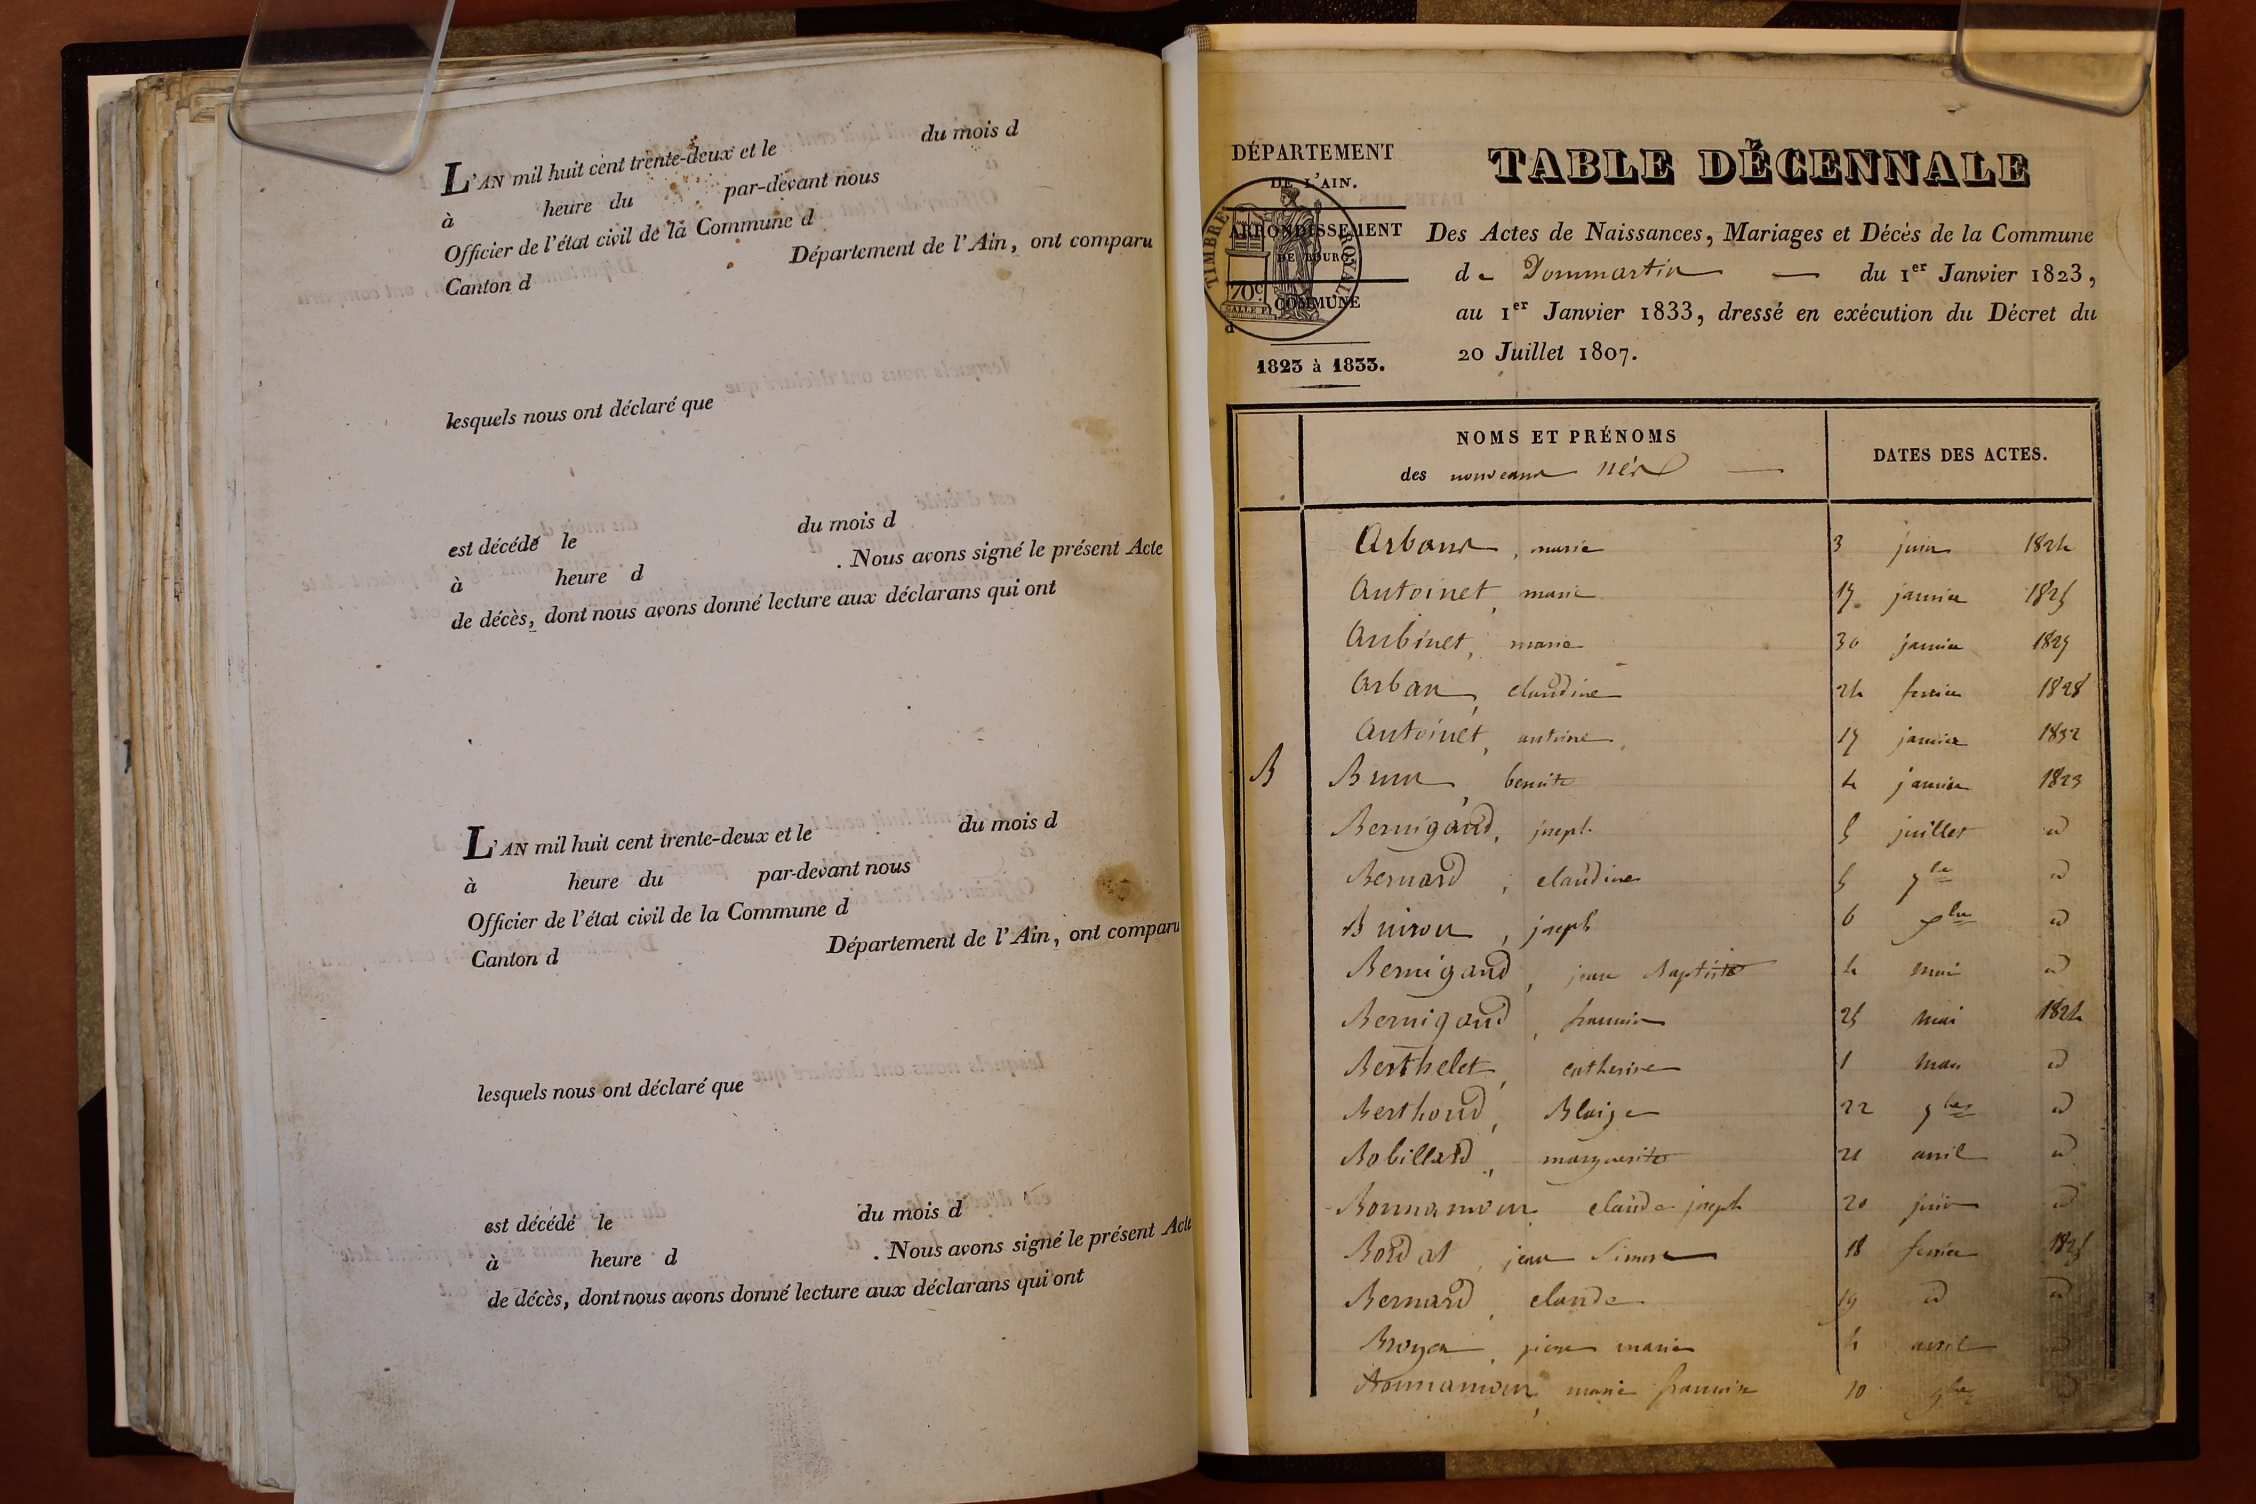 L'AN mil huit cent trente-deux et le du mois d
à heure du par-devant nous
Officier de l'état civil de la Commune d
Canton d Département de l'Ain, ont comparu
lesquels nous ont déclaré que
est décédé le du mois d
à heure d . Nous avons signé le présent Acte
de décès, dont nous avons donné lecture aux déclarans qui ont
L'AN mil huit cent trente-deux et le du mois d
à heure du par-devant nous
Officier de l'état civil de la Commune d
Canton d Département de l'Ain, ont comparu
lesquels nous ont déclaré que
est décédé le du mois d
à heure d . Nous avons signé le présent Acte
de décès, dont nous avons donné lecture aux déclarans qui ont
DÉPARTEMENT
DE L'AIN.
ARRONDISSEMENT
DE BOURG
COMMUNE
d
TIMBRE ROYAL
70c
1823 à 1833.
TABLE DÉCENNALE
Des Actes de Naissances, Mariages et Décès de la Commune
de Dommartin du 1er Janvier 1823,
au 1er Janvier 1833, dressé en exécution du Décret du
20 Juillet 1807.
NOMS ET PRÉNOMS
des nouveaux nés
DATES DES ACTES.
marie 3 juin 1824
Antoinet, marie janvier 1825
Aubinet, marie 30 janvier
Arban, claudine 24 fevrier 1828
Antoinet, antoine janvier 1832
B Brun, benoite 4 janvier 1823
Bernigaud, joseph 5 juillet id
Bernard, claudine 5 id
Buiron, joseph 6 id
Bernigaud, jean Baptiste 4 mai id
Bernigaud, 25 mai 1824
Berthelet, catherine 1 mars id
Berthoud, Blaize 22 id
Robillard, marguerite 21 avril id
Bonnamour claude joseph 20 juin id
Bordat, jean Simon 18 fevrier 1825
Bernard, claude 19 id id
Broyer, pierre marie 4 avril id
Bonnamour, marie francoise 10 id